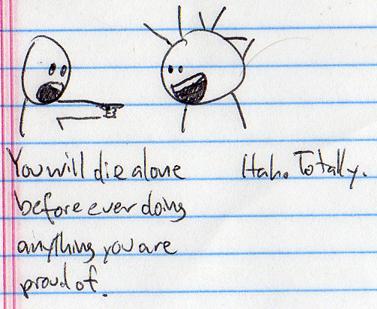 You will die alone
before ever doing
anything you are
proud of.
Hah. Totally.